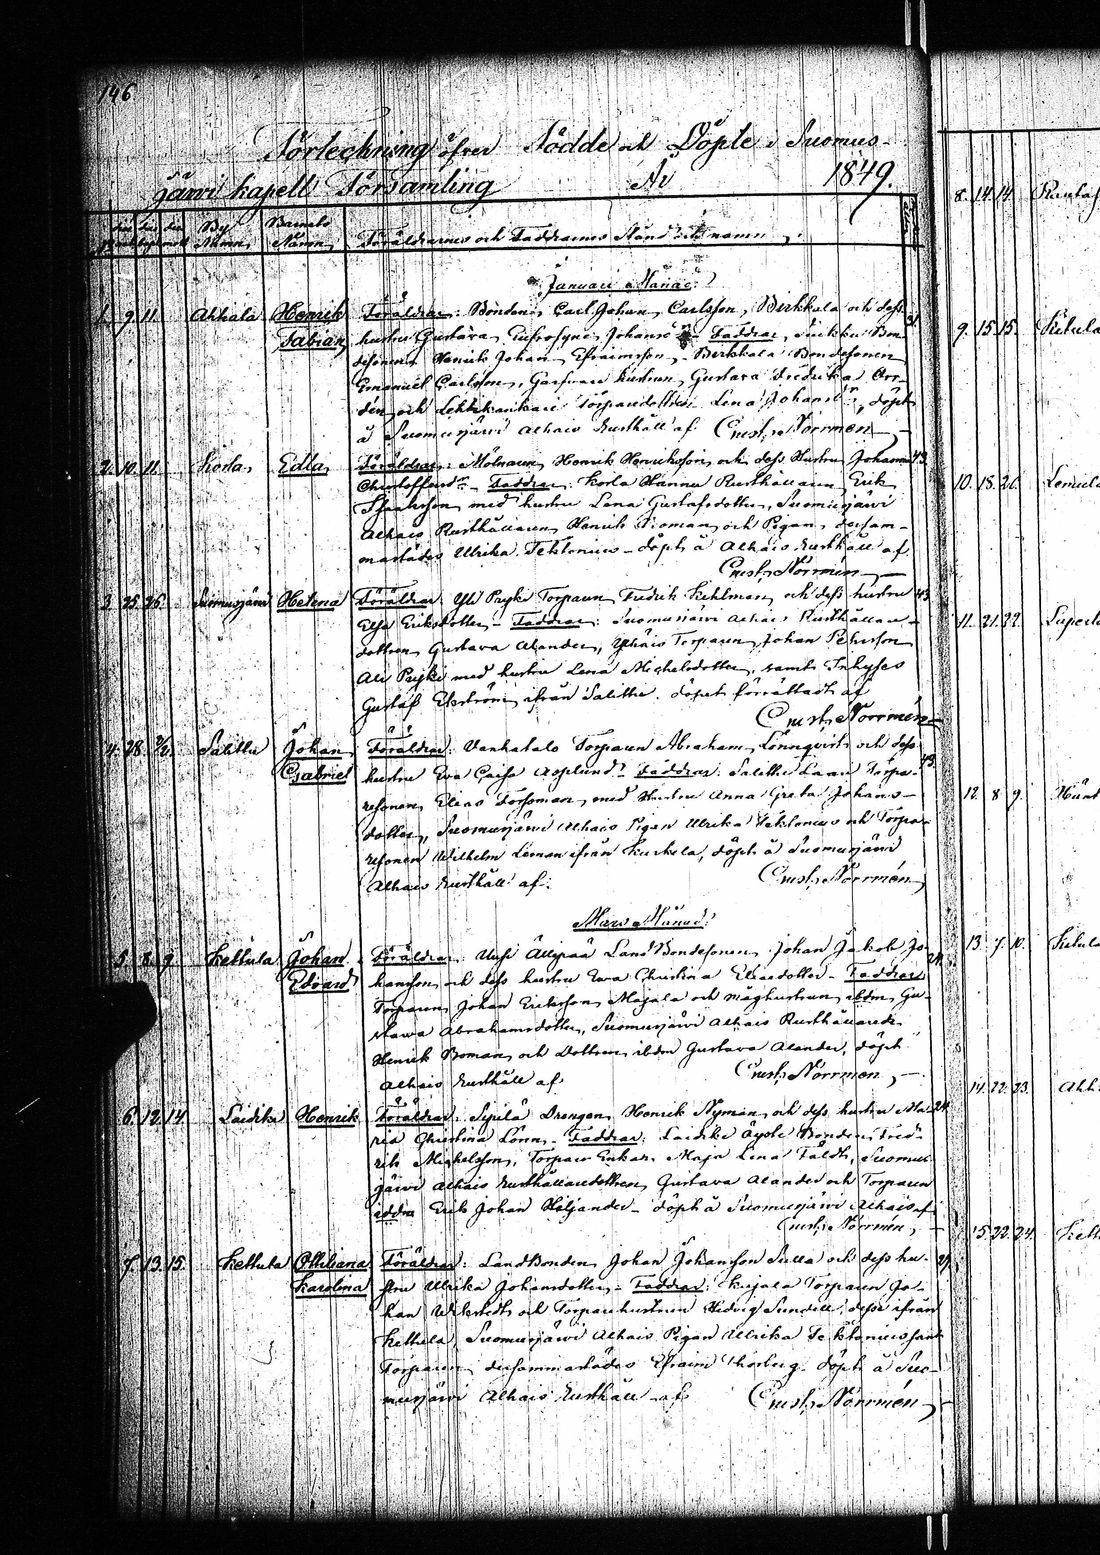 146
Förteckning öfver Födde och Döpte i Suomus-
järvi kapell Församling År 1849.
By Namn Barnets Namn Föräldrarnes och Faddrarnes Stånd och namn
Januari Månad:
1. 9. 11. Ahtiala Henrik Föräldrar: Bonden Carl Johan Carlsson, Birkkala och dess 31
Fabian hustru Gustava Eufrosyne Johansd:r Faddrar, Bon-
desonen Henrik Johan Efraimsson, Birkkala Bondesonen
Emanuel Carlsson, hustrun Gustava Fredrika
och Torparedottren Lena Johansd:r, döpt
å Suomusjärvi Alhais Rusthåll af Christ. Norrmén
2. 10. 11. Korla Edla Föräldrar: Mölnaren Henrik Henriksson och dess Hustru Johanna 43
Christoffersd:r Faddrar: Korla Hannu Rusthållaren Erik
med hustru Lena Gustafsdotter, Suomusjärvi
Alhais Rusthållaren Henrik Roman och Pigan dersam-
mastädes Ulrika Tektonius döpt å Alhais Rusthåll af
Christ. Norrmén
3. 25. 26. Suomusjärvi Helena Föräldrar: Yli Pejki Torparen Fredrik Kihlman och dess hustru 43
Elsa Eriksdotter Faddrar: Suomusjärvi Alhais Rusthållare-
dottren Gustava Alander, Torparen Johan Petersson
Ali Pejki med hustru Lena Michelsdotter, samt Inhyses
Gustaf Ekström ifrån Salittu. döpet förrättadt af
Christ. Norrmén
4. 28. 2/2. Salittu Johan Föräldrar: Vanhatalo Torparen Abraham Lönnqvist och dess
Gabriel hustru Eva Cajsa Asplund Faddrar: Salittu Torpa- 43
resonen Elias Forsman med Hustru Anna Greta Johans-
dotter, Suomusjärvi Alhais Pigan Ulrika Tektonius och Torpa-
resonen Wilhelm Leman ifrån Kurkela, döpt å Suomusjärvi
Alhais Rusthåll af. Christ. Norrmén
Mars Månad:
5. 8. 9. Kettula Johan Föräldrar: LandBondesonen Johan Jakob Jo-
Edvard hansson och dess hustru Eva Christina Eliasdotter Faddrar 24
Torparen Johan Eriksson Majala och måghustrun ibdm Gu-
stava Abrahamsdotter, Suomusjärvi Alhais
Henrik Roman och Dottren ibdm Gustava Alander, döpt
Alhais Rusthåll af Christ. Norrmén
6. 12. 14. Laidike Henrik Föräldrar: Sipilä Drengen Henrik Nyman och dess hustru Ma- 24
ria Christina Lönn Faddrar: Laidike Äyste Bonden Fred-
rik Michelsson, Torpare Enkan Maja Lena Fäldt, Suomus
järvi Alhais Rusthållaredottren Gustava Alander och Torparen
ibdm Erik Johan Höijander döpt å Suomusjärvi Alhais af
Christ. Norrmén
7. 13. 15. Kettula Othiliana Föräldrar: LandBonden Johan Johansson Sulla och dess hu- 29
Karolina stru Ulrika Johansdotter Faddrar: Kujala Torparen Jo-
han och Torparehustrun Hedvig Sundell, desse ifrån
Kettula, Suomusjärvi Alhais Pigan Ullrika Tektonius samt
Torparen dersammastädes Efraim Thorberg. döpt å Suo-
musjärvi Alhais Rusthåll af Christ. Norrmén
8. 14. 14.
9. 15. 15. Ketula
10. 18. 26. Lemula
11. 21. 22.
12. 8 9.
13. 7. 10. Ketula
14. 22. 23. Aht
15. 22. 24. Kett